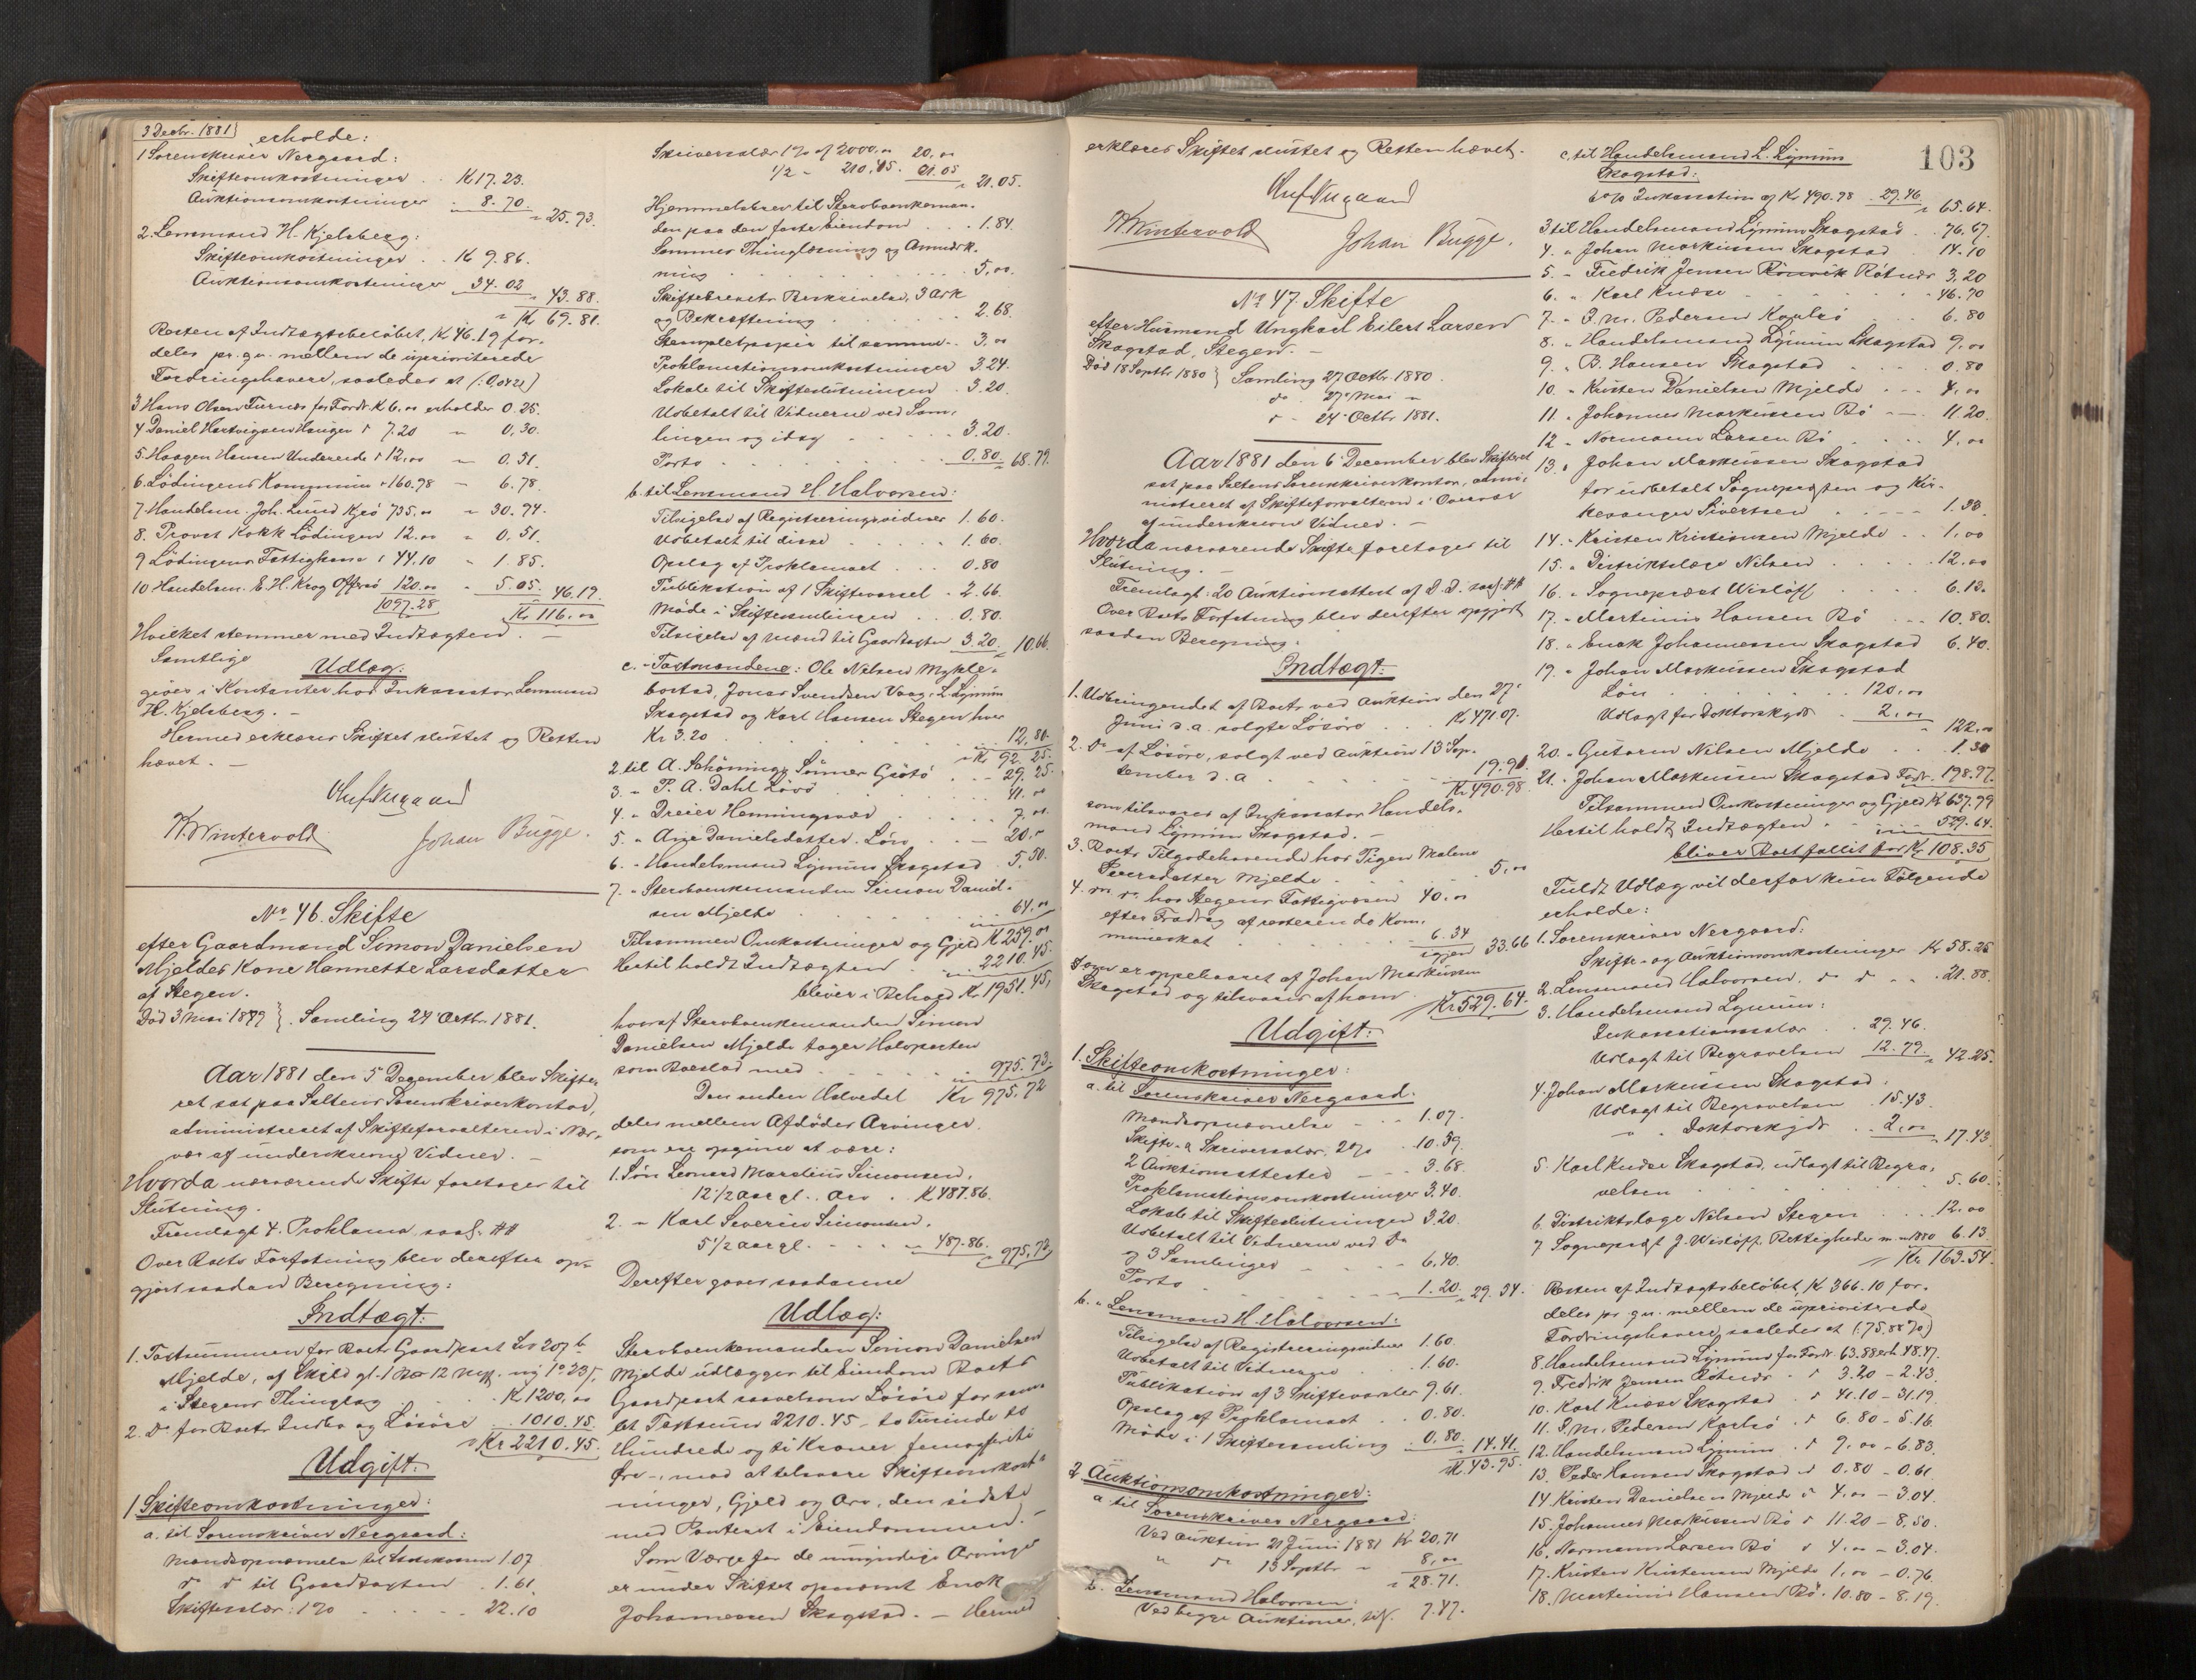 3 Decbr. 1881
erholde:
1 Sorenskriver Nergaard:
Skifteomkostninger . . K 17.23.
Auktionsomkostninger - 8.70. " 25.93.
2. Lensmand H. Kjelsberg:
Skifteomkostninger . . K 9.86.
Auktionsomkostninger 34.02 " 43.88.
" Kr 69.81.
Resten af Indtægtsbeløbet, Kr 46.19 for-
deles pr. qv. mellem de uprioriterede
Fordringshavere, saaledes at
3 Hans Olsen for Fordr. K 6,00 erholder 0.25.
4 Daniel Hartvigsen Hauger " 7.20 " 0,30.
5. Haagen Hansen " 12,00 " 0.51.
6. Lødingens Kommune " 160.78 " 6.78.
7. Handelsm. Joh. Lund Kjeø 735,00 " 30.94.
8. Provst Kokk Lødingen 12,00 " 0.51.
9 Lødingens Fattigkasse " 44,10 " 1.85.
10 Handelsm. E. H. Krog Offersø 120,00 " 5.05. 46.19.
1097.28 Kr 116,00
Hvilket stemmer med Indtægten. —
Udlæg:
Samtlige
gives i Kontanter hos Inkassator Lensmand
H. Kjelsberg. —
Hermed erklæres Skiftet sluttet og Retten
hævet. —
W. Wintervold Johan Bugge.
No 46. Skifte
efter Gaardmand Simon Danielsen
Mjeldes Kone Hannette Larsdatter
af Stegen.
Død 3 Mai 1879 } Samling 24 Octbr. 1881.
Aar 1881 den 5 December blev Skifte-
ret sat paa Saltens Sorenskriverkontor,
administreret af Skifteforvalteren i Nær-
vær af underskrevne Vidner. —
Hvorda nærværende Skifte foretages til
Slutning.
Fremlagt 4. Proklama
Over Boets Forfatning blev derefter op-
gjort saadan Beregning:
Indtægt:
1. Taxtsummen for Boets Gaardpart
Mjelde, af Skyld
i Stegens Thinglag . . K 1200,00
2. Do for Boets Indbo og Løsøre . 1010.45.
" Kr 2210.45.
Udgift:
1 Skifteomkostninger:
a. til Sorenskriver Nergaard:
Mandsopnævnelse til 1.07
" " til Gaardtaxten . 1.61.
Skiftesalær: 1% . . . . 22.10
Skriversalær 1% af 2000,00 20,00
1/2 - 210,45. 01.05 " 21.05.
Hjemmelsbrev til Sterboenkeman-
den paa den faste Eiendom . . . 1.84.
Sammes Thinglæsning og Anmærk-
ning . . . . . 5,00.
Skiftebrevets Beskrivelse, 3 Ark
og Bekræftning . . . . 2.68.
Stempletpapir til samme . . 3,00
Proklamationsomkostninger 3.24.
Lokale til Skifteslutningen . 3.20.
Udbetalt til Vidnerne ved Sam-
lingen og idag . . . . 3.20.
Porto . . . . . 0.80. " 68.79.
b. til Lensmand H. Halvorsen:
Tilsigelse af Registreringsvidner 1.60.
Udbetalt til disse . . . 1.60.
Opslag af Proklamaet . . . 0.80
Publikation af 1 Skiftevarsel . 2.66.
Møde i Skiftesamlingen . . 0.80.
Tilsigelse af Mænd til Gaardtaxten 3.20. " 10.66.
c. - Taxtmændene: Ole Nilsen Mykle-
bostad, Jonas Svendsen Vaag, L. Lynum
Skagstad og Karl Hansen Stegen hver
Kr 3.20 . . . . . 12,80.
" Kr 92.25.
2 til A. Schönnings Sønner Grøtø . . - 29.25.
3. " P. A. Dahl Løvø . . . . 41.00
4. " Dreier Henningsvær . . . 7,00.
5. " Ane Danielsdatter Løv . . — 20.00
6. - Handelsmand Lynum Skagstad . 5.50.
7. - Sterboenkemanden Simon Daniel-
sen Mjelde . . . . . 64,00
Tilsammen Omkostninger og Gjeld K 259,00
Hertil holdt Indtægten . . . 2210.45.
bliver i Behold Kr 1951.45.
hvoraf Sterboenkemanden Simon
Danielsen Mjelde tager Halvparten
som Boeslod med . . . . 975.73.
Den anden Halvedel Kr 975,72
deles mellem Afdødes Arvinger
som ere opgivne at være:
1. Søn Leonard Marelius Simonsen,
12 1/2 Aar gl. . Arv . K 487.86.
2. - Karl Severin Simonsen,
5 1/2 Aar gl. . . . . 487.86. " 975,72
Derefter gjøres saadanne
Udlæg:
Sterboenkemanden Simon Danielsen
Mjelde udlægges til Eiendom Boets
Gaardpart saavelsom Løsøre for sam-
let Taxtsum 2210.45 - to Tusinde to
Hundrede og ti Kroner femogfirti
Øre -, mod at tilsvare Skifteomkost-
ninger, Gjeld og Arv, den sidste
med Panteret i Eiendommen. —
Som Værge for de umyndige Arvinger
er under Skiftet opnævnt Enok
Johannessen Skagstad. — Hermed
103
erklæres Skiftet sluttet og Retten hævet.
W. Wintervold Johan Bugge.
No 47. Skifte
efter Husmand Ungkarl Eilert Larsen
Skagstad, Stegen. —
Død 18 Septbr 1880 } Samling 27 Octbr. 1880.
do " 27 Mai "
" - 24 Octbr 1881.
Aar 1881 den 6 December blev Skifteret
sat paa Saltens Sorenskriverkontor, admi-
nistreret af Skifteforvalteren i Overvær
af underskrevne Vidner. —
Hvorda nærværende Skifte foretages til
Slutning. —
Fremlagt: 20 Auktionsattest af D. D.
Over Boets Forfatning blev derefter opgjort
saadan Beregning:
Indtægt:
1. Udbringendet af Boets ved Auktion den 27
Juni d.a. solgte Løsøre . . . Kr 471.07.
2. Do af Løsøre, solgt ved Auktion 13 Sep-
tember d.a . . . . 19.91.
Kr 490.98.
som tilsvares af Inkassator Handels-
mand Lynum Skagstad. —
3. Boets Tilgodehavende hos Pigen Malene
Peersdatter Mjelde . . . . 5,00
4. " " hos Stegens Fattigvæsen 40,00
efter Fradrag af resterende Kom-
muneskat . . . . 6.34
igjen 33.66
som er oppebaaret af Johan Markussen
Skagstad og tilsvares af ham .
Kr 529.64.
Udgift:
1. Skifteomkostninger:
a. til Sorenskriver Nergaard:
Mandsopnævnelse - . . 1.07.
Skifte- & Skriversalær, 2% . . 10.59.
2 Auktionsattester — . . 3.68.
Proklamationsomkostninger 3.40.
Lokale til Skifteslutningen 3.20.
Udbetalt til Vidnerne ved Do
og 3 Samlinger . . . 6,40.
Porto . . . . 1.20. " 29.54.
b. " Lensmand H. Halvorsen:
Tilsigelse af Registreringsvidner 1.60.
Udbetalt til Vidnerne . . . 1.60.
Publikation af 3 Skiftevarsler 9.61.
Opslag af Proklamaet . . 0.80.
Møde i 1 Skiftesamling . 0.80. " 14.41.
K. 43.95.
2 Auktionsomkostninger:
a til Sorenskriver Nergaard:
Ved Auktion 21 Juni 1881 Kr 20,71
" " 13 Septbr " 8,00
" 28.71.
b. Lensmand Halvorsen:
Ved begge Auktioner, tils. 7.47.
c. til Handelsmand L. Lynum
Skagstad:
6% Inkassation af Kr 490.98 . 29.46. " 65.64.
3 til Handelsmand Lynum Skagstad . . 76.67.
4. " Johan Markussen Skagstad . 14.10
5. - Fredrik Jensen Røtnes 3,20
6. " Karl Knøse . . . . 46.70
7. " I. M. Pedersen Karlsø . . 6.80
8. " Handelsmand Lynum Skagstad 9,00
9. " B. Hansen Skagstad . . . 0.80
10. " Kristen Danielsen Mjelde . . 4,00
11. " Johannes Markussen Bø . — . 11.20.
12 " Normann Larsen Bø . . . 4,00
13. " Johan Markussen Skagstad
for udbetalt Sognepræsten og Kir-
kesanger Sivertsen . . . 1.33.
14. - Kristen Kristiansen Mjelde . . 1,00
15. " Distriktslæge Nilsen . . . 12.00
16. " Sognepræst Wisløff . . . 6.13.
17. - Martinus Hansen Bø . . . 10.80.
18. " Enok Johannessen Skagstad 6.40.
19. " Johan Markussen Skagstad
Løn . . . . . 120,00
Udlagt for Doktorskyds . 2,00 " 122,00
20. " Gutorm Nilsen Mjelde . . . 1.30
21. " Johan Markussen Skagstad Fordr. 198.97.
Tilsammen Omkostninger og Gjeld Kr 637.99
Hertil holdt Indtægten . . 529.64.
bliver Boet fallit for Kr 108.35
Fuldt Udlæg vil derfor kun Følgende
erholde:
1. Sorenskriver Nergaard:
Skifte- og Auktionsomkostninger Kr 58.25
2. Lensmand Halvorsen, do do " . 21.88.
3. Handelsmand Lynum:
Inkassationssalær . . 29.46.
Udlagt til Begravelsen 12.79. " 42.25.
4. Johan Markussen Skagstad:
Udlagt til Begravelsen . 15.43.
" " Doktorskyds . . 2,00 " 17.43
5. Karl Knøse Skagstad, udlagt til Begra-
velsen . . . . . 5.60.
6. Distriktslæge Nilsen Stegen . . 12.00
7 Sognepræst J. Wisløff, Rettigheder m.m. 1880 6.13.
" Kr 163.54.
Resten af Indtægtsbeløbet, K 366.10 for-
deles pr. qv. mellem de uprioriterede
Fordringshavere, saaledes at (: 75,88 %)
8. Handelsmand Lynum for Fordr. 63.88 erh. 48.47.
9. Fredrik Jensen Røtnes . " 3.20 - 2.43.
10. Karl Knøse Skagstad . " 41.10 - 31.19.
11. I. M. Pedersen Karlsø . " 6.80 - 5.16.
12. Handelsmand Lynum . " 9,00 - 6.83.
13. Peder Hansen Skagstad " 0.80 - 0.61.
14 Kristen Danielsen Mjelde " 4,00 - 3.04.
15. Johannes Markussen Bø " 11.20 - 8,50.
16. Normann Larsen Bø " 4,00 - 3.04.
17. Kristen Kristensen Mjelde 1,00 - 0.76
18. Martinus Hansen Bø . 10.80 - 8.19.